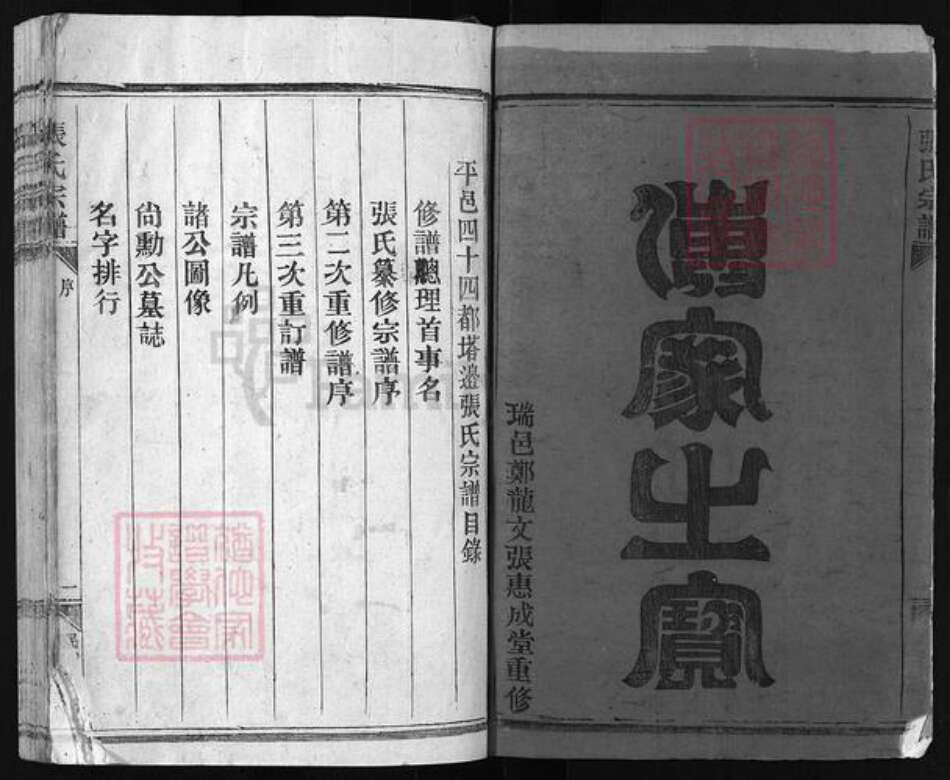 傳家之寶
瑞邑鄭龍文張惠成堂重修
張氏宗譜
平邑四十四都塔邉張氏宗譜目錄
修譜總理首事名
張氏纂修宗譜序
第二次重修譜序
第三次重訂譜
宗譜凡例
諸公圖像
尙勳公墓誌
名字排行
張氏宗譜
序